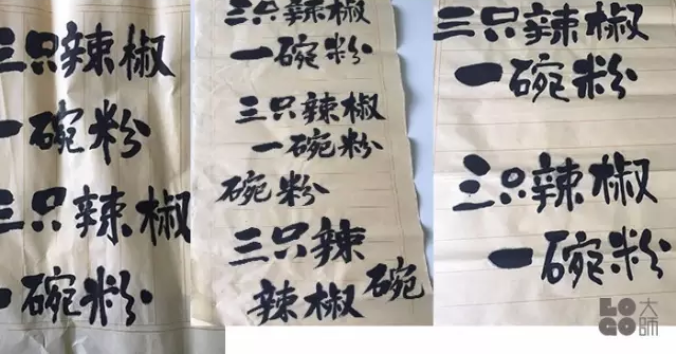 三只辣椒
一碗粉
三只辣椒
一碗粉
三只辣椒
一碗粉
三只辣椒
一碗粉
碗粉
三只辣
辣椒碗
三只辣椒
一碗粉
三只辣椒
一碗粉
LOGO大师